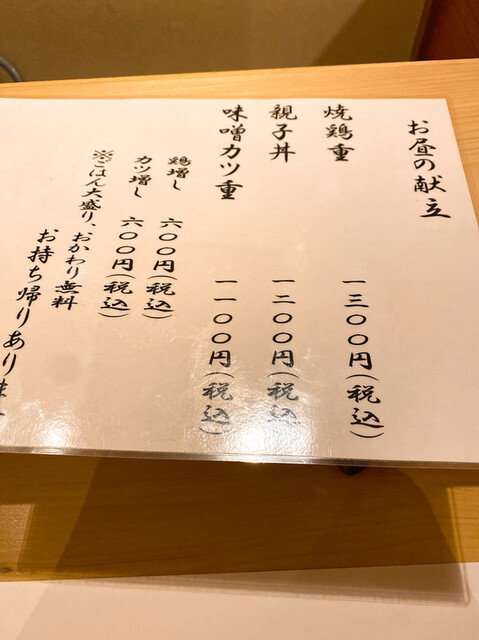 お昼の献立
焼鶏重 一三〇〇円(税込)
親子丼 一二〇〇円(税込)
味噌カツ重 一一〇〇円(税込)
鶏増し 六〇〇円(税込)
カツ増し 六〇〇円(税込)
※ごはん大盛り、おかわり無料
お持ち帰りあり